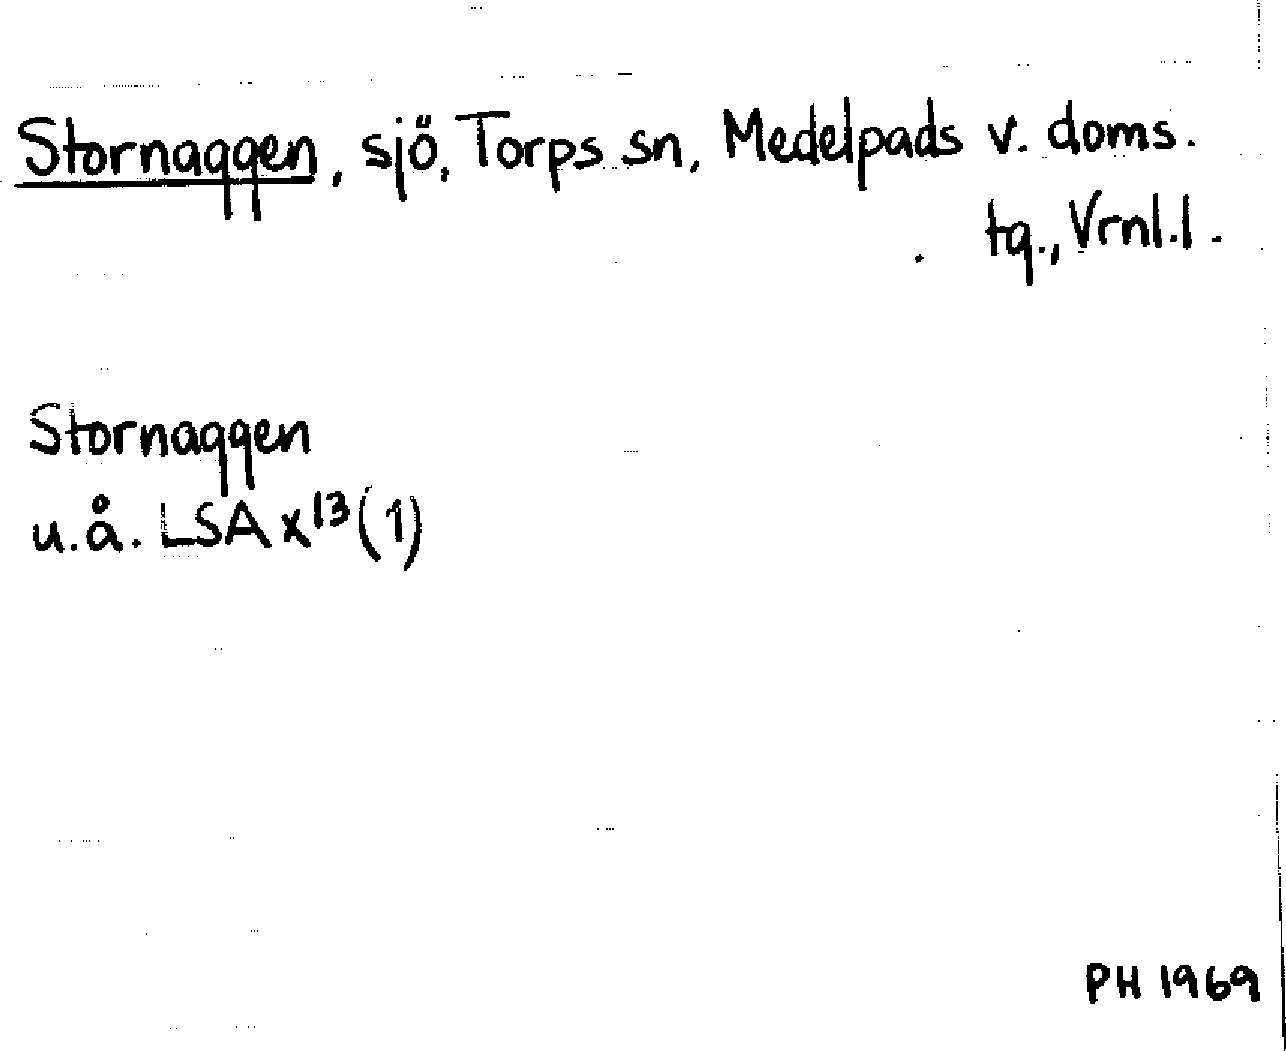 Stornaggen, sjö, Torps sn, Medelpads v. doms.
tg., Vrnl.l.
Stornaggen
u.å. LSA x¹³(1)
PH 1969